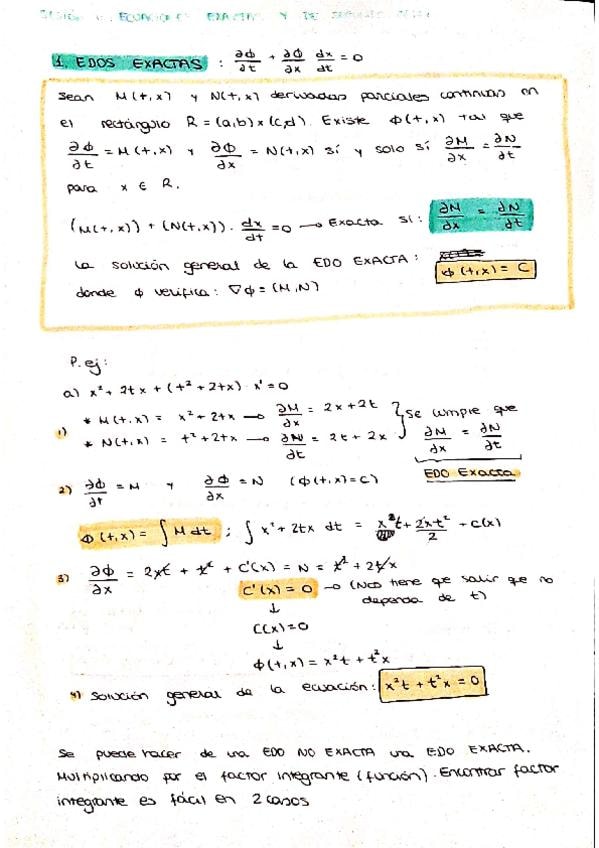 1. EDOS EXACTAS : ∂Φ/∂t + ∂Φ/∂x dx/dt = 0
Sean M(t,x) y N(t,x) derivadas parciales continuas en
el rectángulo R = (a,b) x (c,d). Existe Φ(t,x) tal que
∂Φ/∂t = M(t,x) y ∂Φ/∂x = N(t,x) sí y solo sí ∂M/∂x = ∂N/∂t
para x ∈ R.
(M(t,x)) + (N(t,x)) · dx/dt = 0 → Exacta si: ∂M/∂x = ∂N/∂t
La solución general de la EDO EXACTA: Φ(t,x) = C
donde Φ verifica: ∇Φ = (M,N)
P.ej:
a) x² + 2tx + (t² + 2tx) · x' = 0
1) * M(t,x) = x² + 2tx → ∂M/∂x = 2x + 2t } se cumple que
* N(t,x) = t² + 2tx → ∂N/∂t = 2t + 2x ∂M/∂x = ∂N/∂t
EDO Exacta
2) ∂Φ/∂t = M y ∂Φ/∂x = N (Φ(t,x) = C)
Φ(t,x) = ∫ M dt ; ∫ x² + 2tx dt = x²t + 2xt²/2 + C(x)
3) ∂Φ/∂x = 2xt + t² + C'(x) = N = t² + 2tx
C'(x) = 0 → (Nos tiene que salir que no
depende de t)
↓
C(x) = 0
↓
Φ(t,x) = x²t + t²x
4) Solución general de la ecuación: x²t + t²x = 0
Se puede hacer de una EDO NO EXACTA una EDO EXACTA.
Multiplicando por el factor integrante (función). Encontrar factor
integrante es fácil en 2 casos